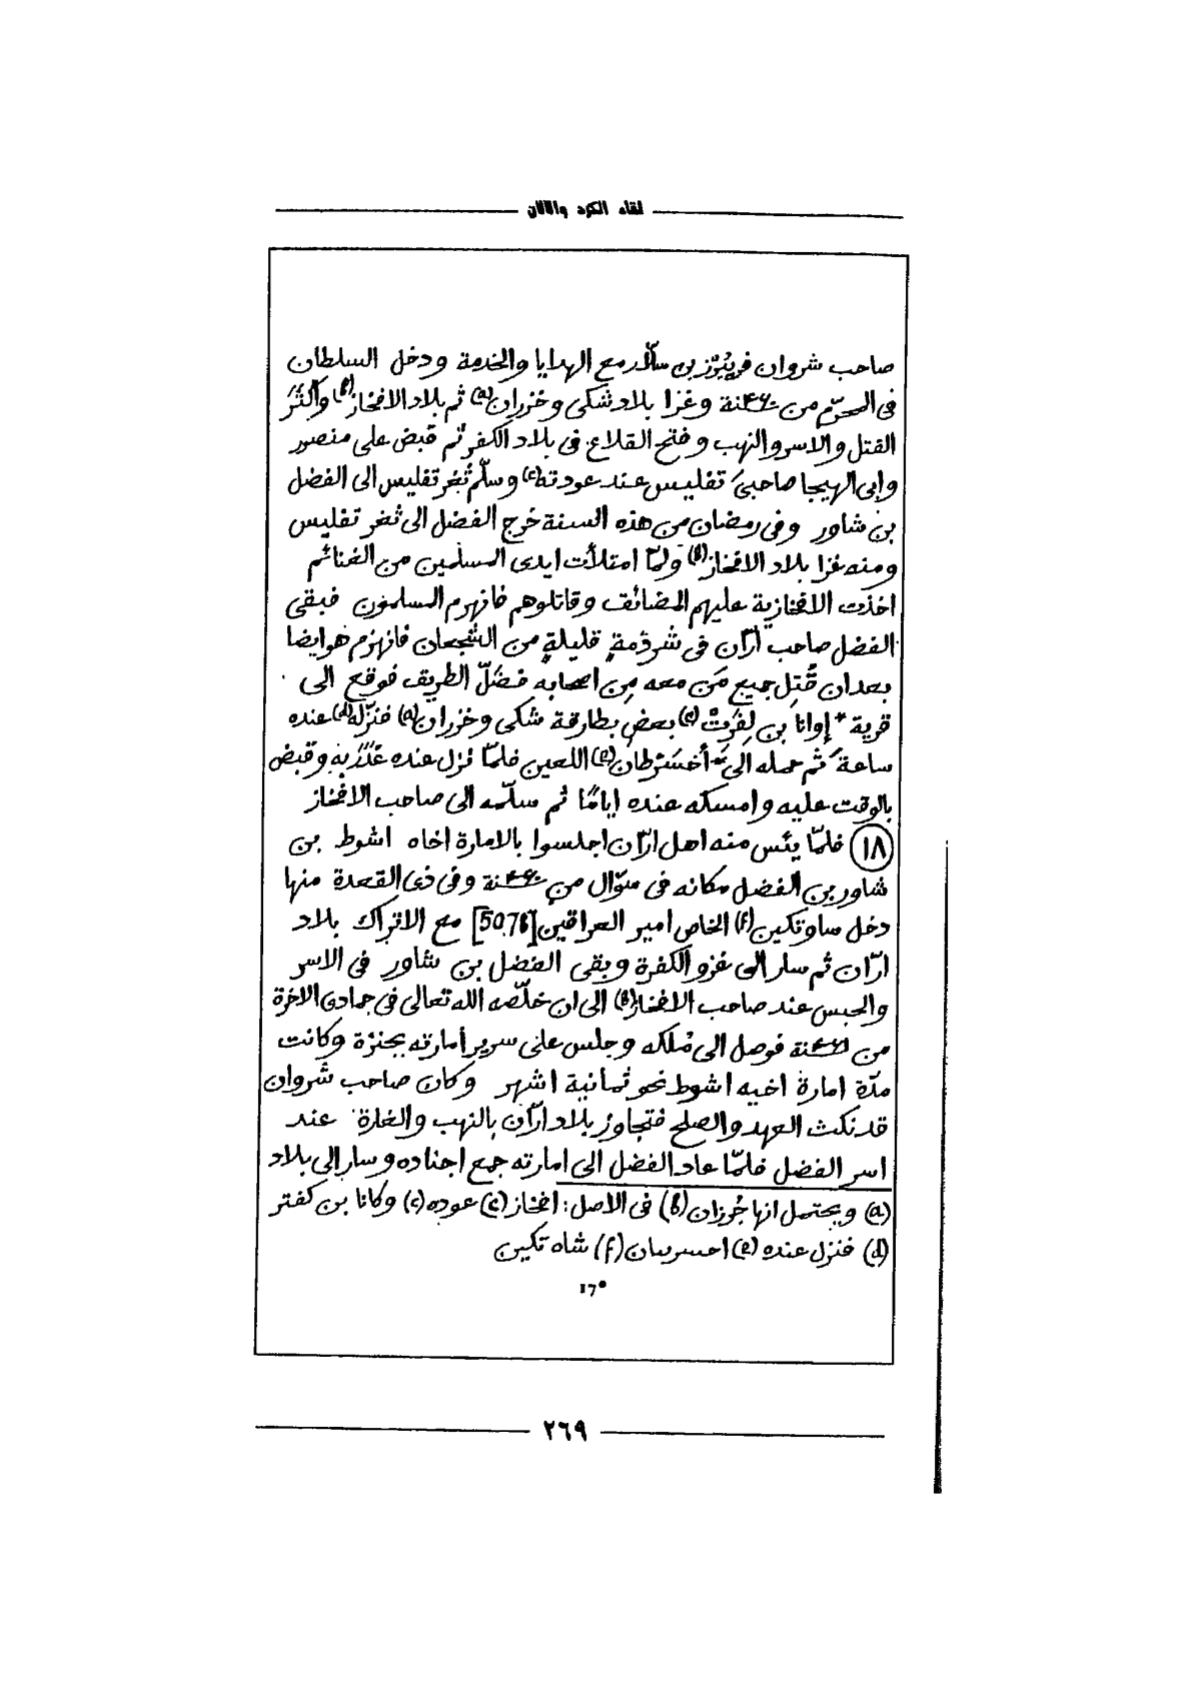 لقاء الكرد واللان
صاحب شروان فريبُرْز بن سلّار مع الهدايا والخدمة ودخل السلطان
فى المحرّم من سنة ٤٦٠ وغزا بلاد شكى وخزران(a) ثم بلاد الافخاز(b) واكْثَرَ
القتل والاسر والنهب وفتح القلاع فى بلاد الكفر ثم قبض على منصور
وابى الهيجا صاحبىَ تفليس عند عودته(c) وسلّم ثَغر تفليس الى الفضل
بن شاور وفى رمضان من هذه السنة خرج الفضل الى ثغر تفليس
ومنه غزا بلاد الافخاز(b) ولمّا امتلأت ايدى المسلمين من الغنائم
اخذت الافخازية عليهم المضائق وقاتلوهم فانهزم المسلمون فبقى
الفضل صاحب ارّان فى شرذمةٍ قليلةٍ من الشجعان فانهزم هو ايضا
بعد ان قُتِل جميع مَن معه مِن اصحابه فضَلّ الطريق فوقع الى
قرية * إوانا بن لِفَرَتْ(c) بعض بطارقة شكى وخزران(a) فنزّله(d) عنده
ساعةً ثم حمله الى * أخسَرْطان(e) اللعين فلمّا نزل عنده غَدَرَ بِهِ وقبض
بالوقت عليه وامسكه عنده ايامًا ثم سلّمه الى صاحب الافخاز
(١٨) فلمّا يئس منه اهل ارّان اجلسوا بالامارة اخاه اشوط بن
شاور بن الفضل مكانه فى شوّال من سنة ٤٦٠ وفى ذى القعدة منها
دخل ساوتكين(f) الخاص امير العراقين [507b] مع الاتراك بلاد
ارّان ثم سار الى غزو الكفرة وبقى الفضل بن شاور فى الاسر
والحبس عند صاحب الافخاز(b) الى ان خلّصه الله تعالى فى جمادى الاخرة
من سنة ٤٦١ فوصل الى مُلكه وجلس على سرير أمارته بجنزة وكانت
مدّة امارة اخيه اشوط نحو ثمانية اشهر وكان صاحب شروان
قد نكث العهد والصلح فتجاوز بلاد ارّان بالنهب والغارة عند
اسر الفضل فلمّا عاد الفضل الى امارته جمع اجناده وسار الى بلاد
(a) ويحتمل انها جُرزان (b) فى الاصل: افخاز (c) عوده (c) وكانا بن كفتر
(d) فنزل عنده (e) احسرسان (f) شاه تكين
17*
٢٦٩